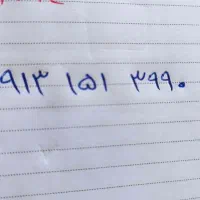 ۹۱۳ ۱۵۱ ۳۹۹۰